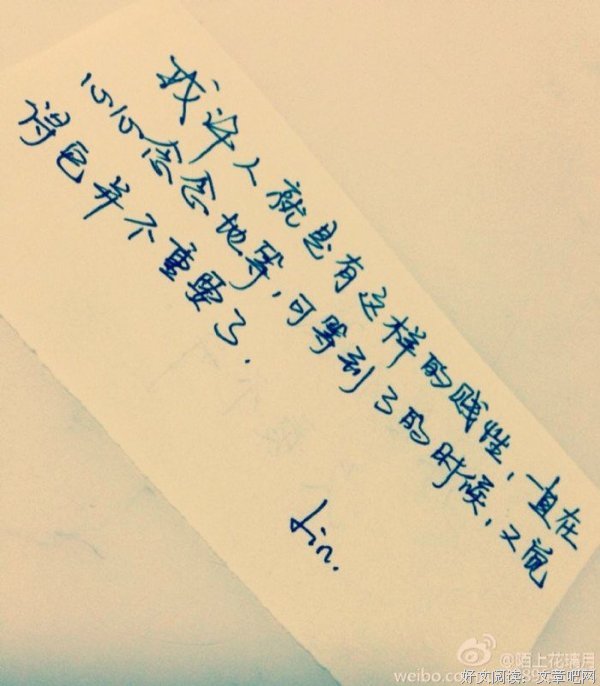 或许人就是有这样的贱性，一直在
心心念念地等，可等到了的时候，又觉
得它并不重要了.
Lin.
@陌上花璃月
weibo.com/
好文阅读：文章吧网